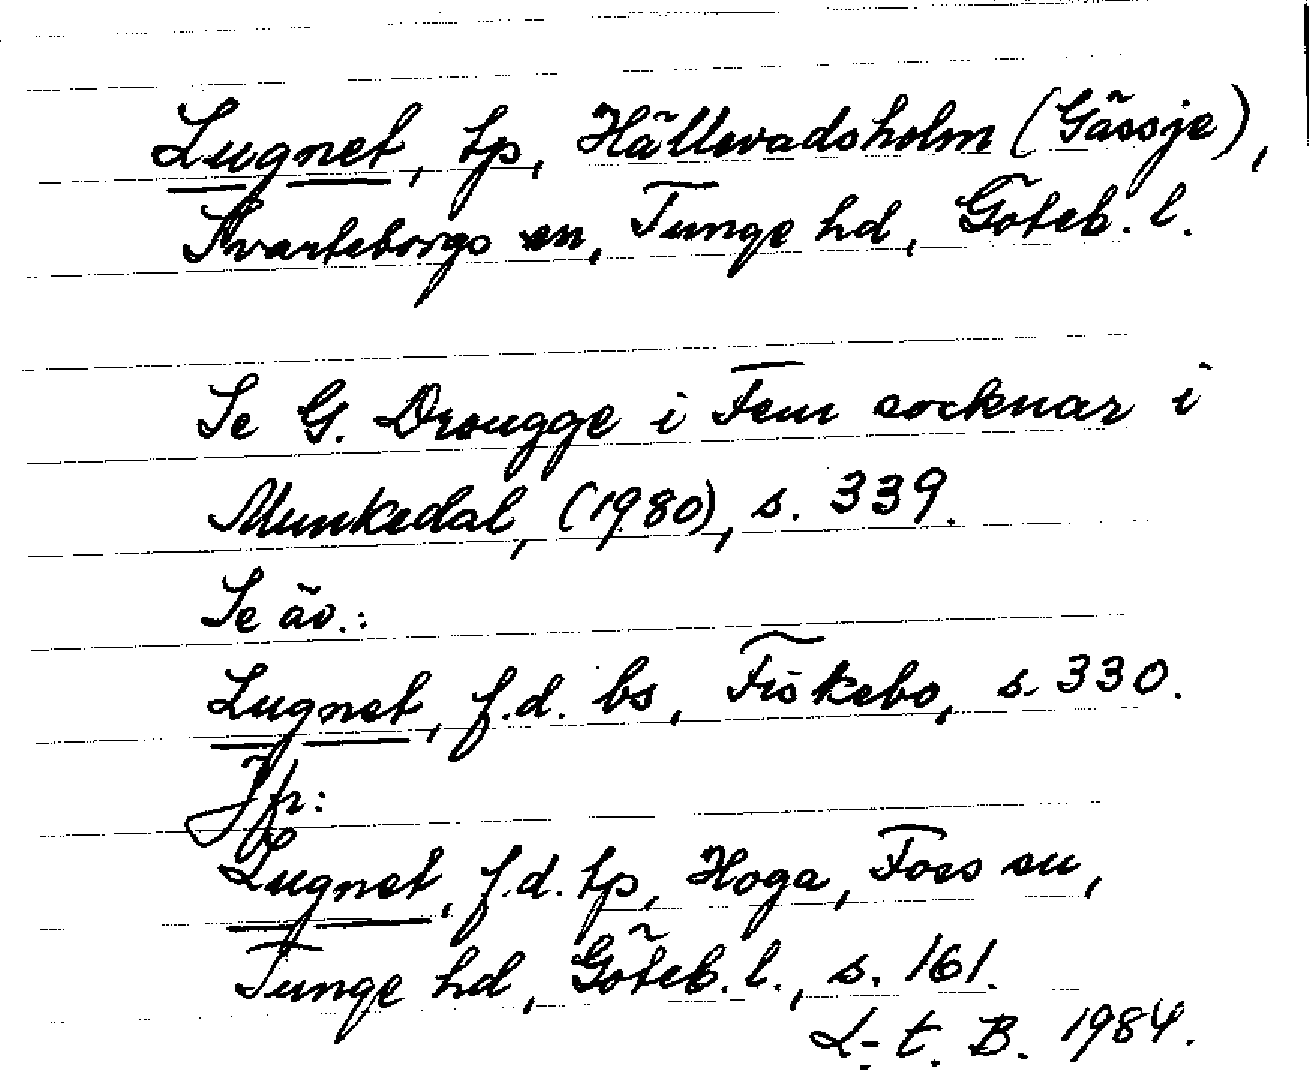 Lugnet, tp, Hällevadsholm (Gässje),
Svarteborgs sn, Tunge hd, Göteb. l.
Se G. Drougge i Fem socknar i
Munkedal, (1980), s. 339.
Se äv.:
Lugnet, f.d. bs, Fisketebo, s. 330.
Jfr:
Lugnet, f.d. tp, Hoga, Foss sn,
Tunge hd, Göteb. l., s. 161.
L-t. B. 1984.